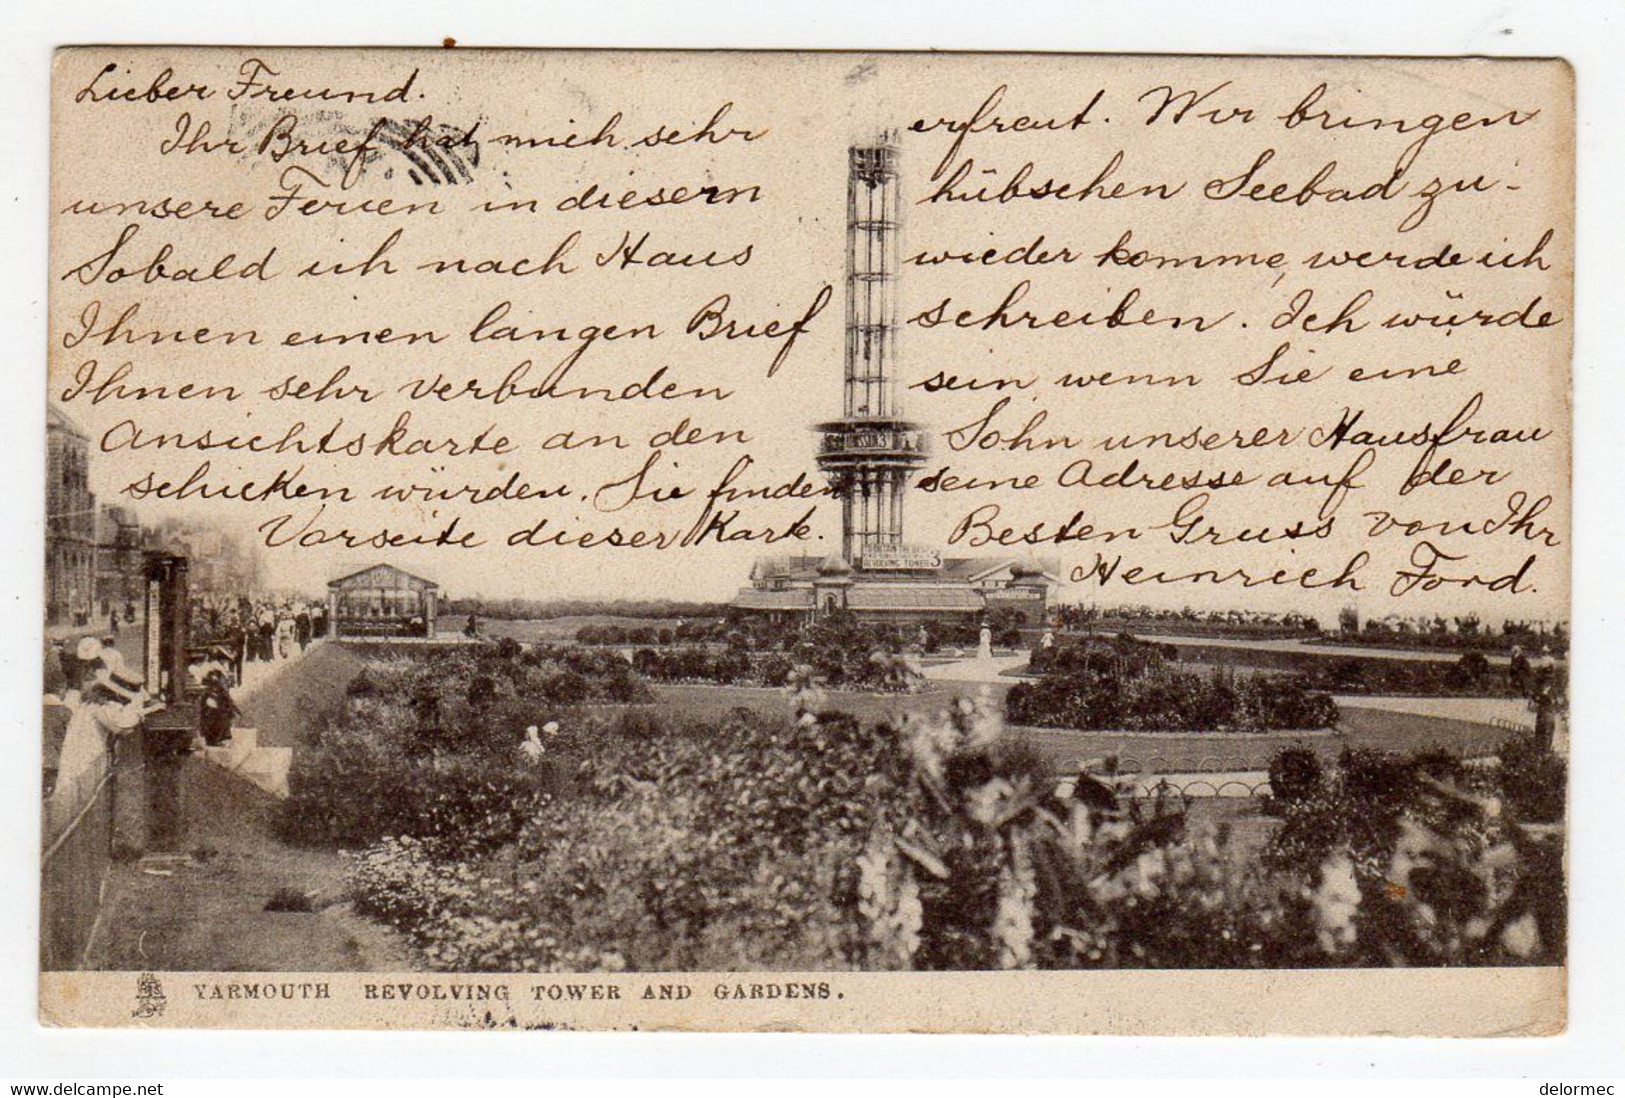 Lieber Freund.
Ihr Brief hat mich sehr erfreut. Wir bringen
unsere Ferien in diesem hübschen Seebad zu.
Sobald ich nach Haus wieder komme, werde ich
Ihnen einen langen Brief schreiben. Ich würde
Ihnen sehr verbunden sein wenn Sie eine
Ansichtskarte an den Sohn unserer Hausfrau
schicken würden. Sie finden seine Adresse auf der
Vorseite dieser Karte. Besten Gruss von Ihr
Heinrich Ford.
REVOLVING TOWER 3
YARMOUTH REVOLVING TOWER AND GARDENS.
www.delcampe.net
delormec